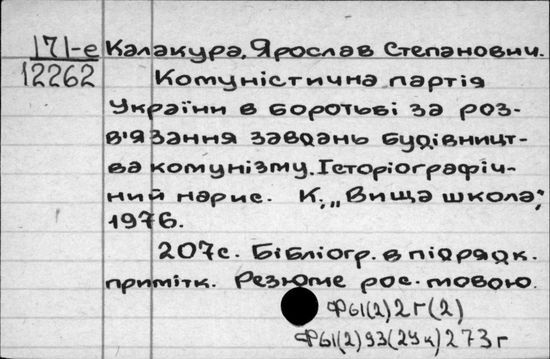 171-е Калакура, Ярослав Степанович.
12262 Комуністична партія
України в боротьбі за роз-
в'язання завдань будівницт-
ва комунізму. Історіографіч-
ний нарис. К., „Вища школа",
1976.
207с. Бібліогр. в підрядк.
примітк. Резюме рос. мовою.
Ф61(2)2г(2)
Ф61(2)93(2Ук)273г